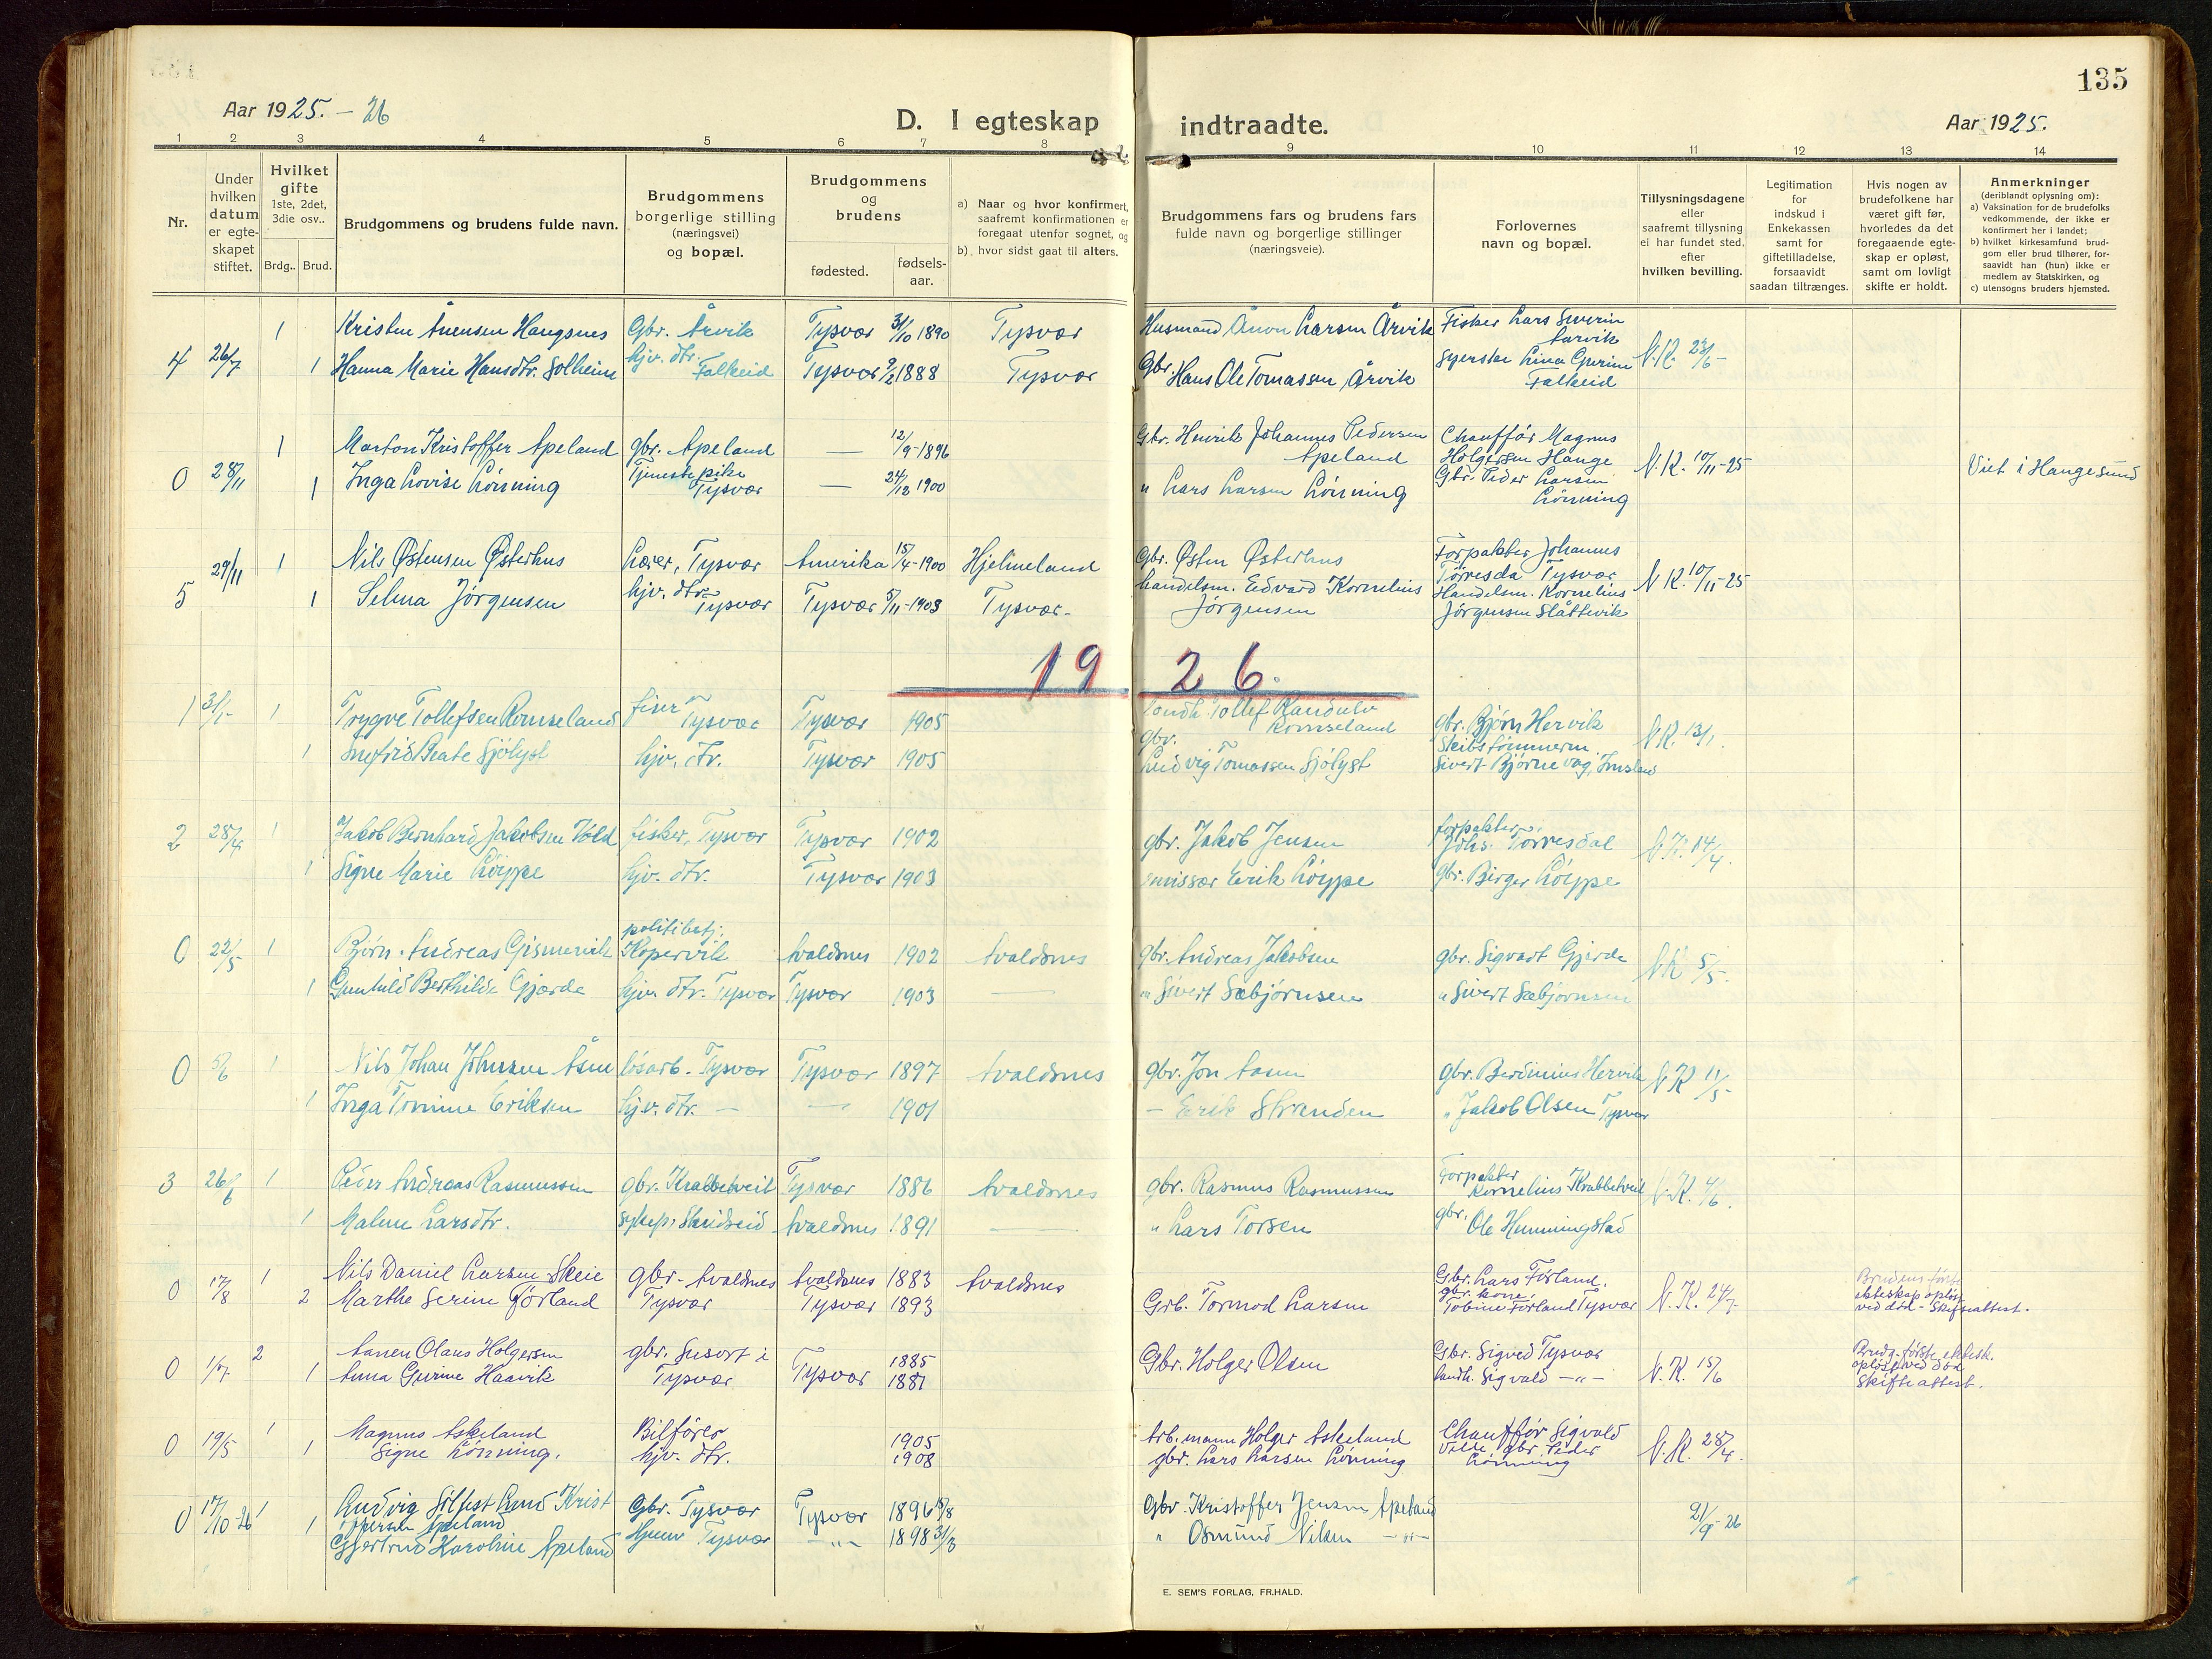 135
Aar 1925. – 26
D. I egteskap indtraadte.
Aar 1925.
1 2 3 4 5 6 7 8 9 10 11 12 13 14
Nr.
Under hvilken datum er egte-skapet stiftet.
Hvilket gifte 1ste, 2det, 3die osv..
Brdg.. Brud.
Brudgommens og brudens fulde navn.
Brudgommens borgerlige stilling (næringsvei) og bopæl.
Brudgommens og brudens
fødested.
fødsels-aar.
a) Naar og hvor konfirmert, saafremt konfirmationen er foregaat utenfor sognet, og
b) hvor sidst gaat til alters.
Brudgommens fars og brudens fars fulde navn og borgerlige stillinger (næringsveie).
Forlovernes navn og bopæl.
Tillysningsdagene eller saafremt tillysning ei har fundet sted, efter hvilken bevilling.
Legitimation for indskud i Enkekassen samt for giftetilladelse, forsaavidt saadan tiltrænges.
Hvis nogen av brudefolkene har været gift før, hvorledes da det foregaaende egte-skap er opløst, samt om lovligt skifte er holdt.
Anmerkninger (deriblandt oplysning om):
a) Vaksination for de brudefolks vedkommende, der ikke er konfirmert her i landet;
b) hvilket kirkesamfund brud-gom eller brud tilhører, for-saavidt han (hun) ikke er medlem av Statskirken, og
c) utensogns bruders hjemsted.
1 Kristen Hangsnes Gbr. Årvik Tysvær 31/10 1890 Tysvær Husmand Larsen Årvik Fisker Lars Severin Larvik
4 26/7 1 Hanna Marie Hansdtr. Solheim hjv. dtr. Falkeid Tysvær 9/2 1888 Tysvær Gbr. Hans Ole Tomassen, Årvik Syerske Lina Falkeid N.K. 24/6 -
1 Marton Kristoffer Apeland gbr. Apeland — 12/9-1896 Gbr. Henrik Johannes Pedersen Apeland Chauffør Magnus Holgersen Hauge
0 28/11 1 Inga Lovise Lönning Tjenestepike Tysvær — 24/12 1900 " Lars Larsen Lönning Gbr. Peder Larsen Lönning N.K. 10/11-25 Viet i Haugesund
29/11 1 Nils Østensen Østerhus Lærer, Tysvær Amerika 15/4-1900 Hjelmeland Gbr. Østen Østerhus Forpakter Johannes Tysvær
5 1 Selma Jörgensen hjv. dtr. Tysvær Tysvær 5/11-1903 Tysvær - handelsm. Edvard Kornelius Jörgensen Handelsm. Kornelius Jörgensen Slåttevik N.K. 10/11-25
19 26.
1 31/1- 1 Trygve Tollefsen Romseland Tysvær Tysvær 1905 Tollef Romseland gbr. Bjørn Hervik
1 Beate Sjölyst hjv. dtr. Tysvær 1905 gbr. Ludvig Tomassen Sjölyst Skibstömmerm. Sivert N.K. 13/1.
2 28/4 1 Jakob Bernhard Jakobsen fisker, Tysvær Tysvær 1902 gbr. Jakob Jensen forpakter Johs. Törresdal N.K. 14/4.
1 Signe Marie Löyppe hjv. dtr. Tysvær 1903 emissær Erik Löyppe gbr. Birger Löyppe
0 22/5 1 Bjørn Andreas Gismervik politibetj. Kopervik Avaldsnes 1902 Avaldsnes gbr. Andreas Jakobsen gbr. Sigvart Gjerde N.K. 5/5.
1 Gunhild Berthilde Gjærde hjv. dtr. Tysvær Tysvær 1903 — " Sivert Sæbjörnsen " Sivert Sæbjörnsen
0 5/6 1 Nils Johan Johnsen Åsen lösarb. Tysvær Tysvær 1897 Avaldsnes gbr. Jon Aasen gbr. Hervik N.K. 11/5-
1 Inga Tomine Eriksen hjv. dtr. — — 1901 — Erik Stranden " Jakob Olsen Tysvær
3 26/6 1 Peder Andreas Rasmussen gbr. Krabbetveit Tysvær 1886 Avaldsnes gbr. Rasmus Rasmussen Forpakter Kornelius Krabbetveit N.K. 4/6.
1 Malene Larsdtr. sykepl. Skeidseid Avaldsnes 1891 — " Lars Torsen gbr. Ole Hemmingstad
1 Nils Daniel Larsen Skeie gbr. Avaldsnes Avaldsnes 1883 Avaldsnes Gbr. Lars Förland.
0 17/8 2 Marthe Serine Förland Tysvær Tysvær 1893 Grb. Tormod Larsen gbr. kone, Tobine Förland Tysvær N.K. 24/7 Brudens förste ekteskap oplöst ved död - Skifteattest.
2 Aanen Olaus Holgersen gbr. Susort i 1885 Gbr. Sigved Tysvær
0 1/7 1 Anna Gurine Haavik Tysvær Tysvær 1881 Gbr. Holger Olsen landh. Sigvald —"— N.K. 15/6 Brudg. förste ektesk. oplöst ved död Skifteattest.
0 19/5 1 Magnus Askeland Bilförer 1905 Arb. mann Holger Askeland Chauffør Sigvald
1 Signe Lönning. hjv. dtr. 1908 gbr. Lars Larsen Lönning gbr. Peder Lönning N.K. 28/4.
0 17/10-26 1 Ludvig Silfest Lund Kristoffersen Apeland Gbr. Tysvær Tysvær 1896 18/8 Gbr. Kristoffer Jensen Apeland
1 Gjertrud Karoline Apeland Hjem Tysvær —"— 1898 31/3 " Osmund Nilsen —"— 21/9-26
E. SEM'S FORLAG, FR.HALD.